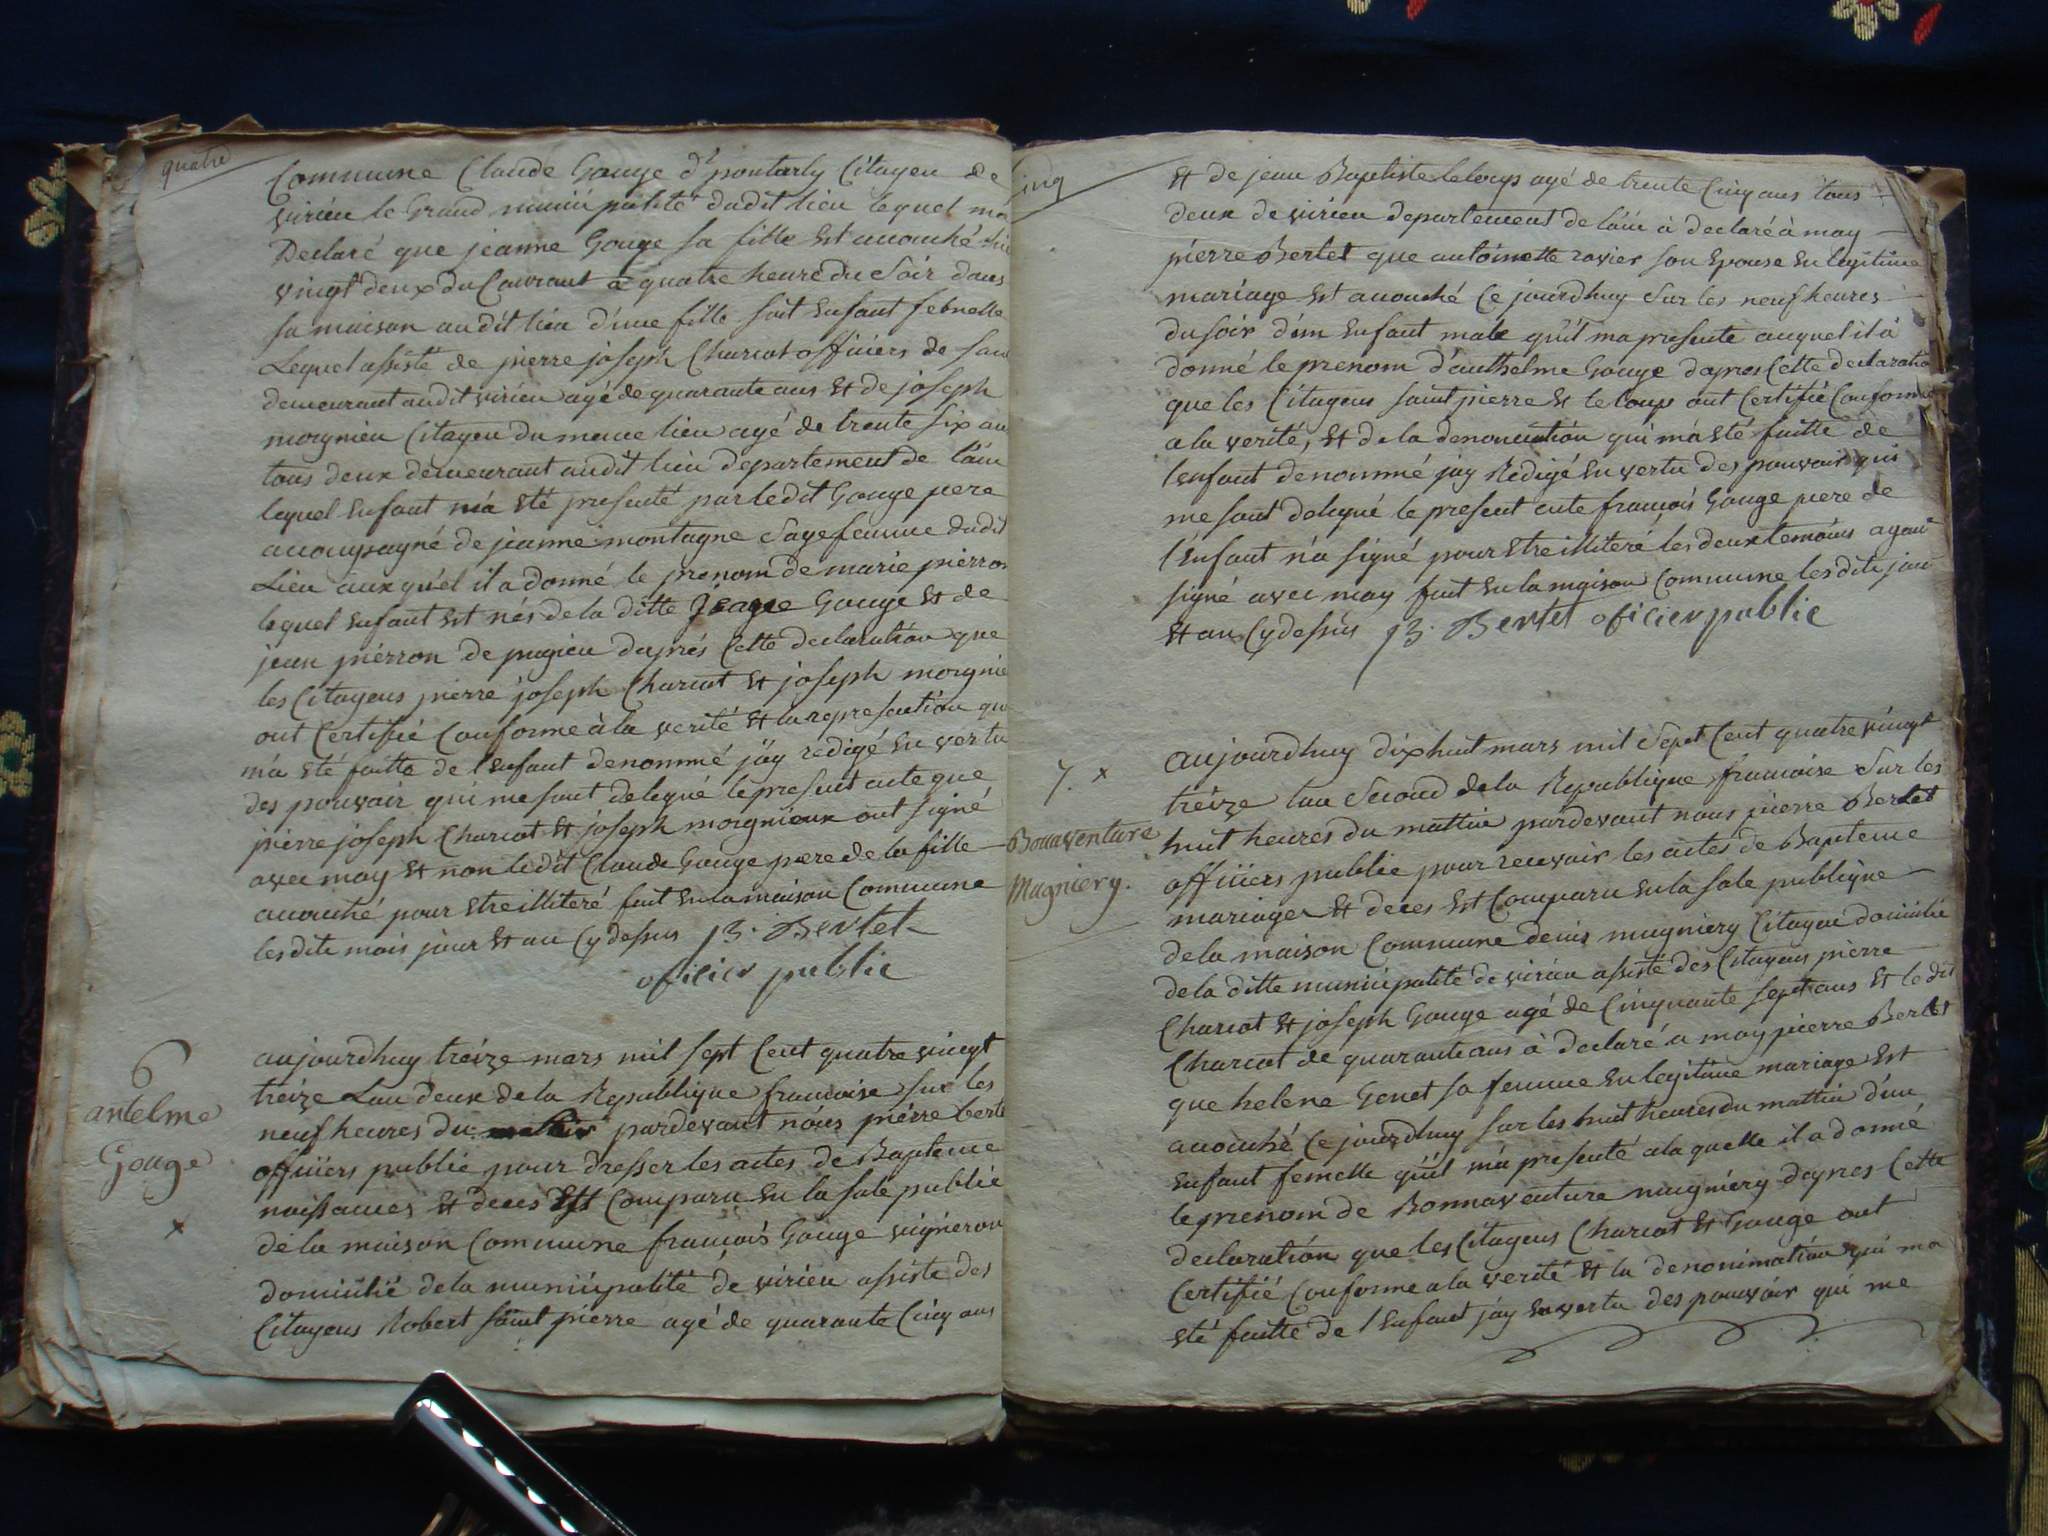 quatre
Commune Claude Gouge dt pontarly Citayen de
virieu le Grand municipalité dudit lieu lequel ma
Declaré que jeanne Gouge sa fille Est acouché
vingt deux du Courant a quatre heure du Soir dans
sa maison audit lieu d'une fille soit Enfant febnelle
Lequel assisté de pierre joseph Charcot officiers de
demeurant audit virieu agé de quarante ans Et de joseph
morgnieu Citayen du meme lieu agé de trente Six an
tous deux demeurant audit lieu departement de l'ain
lequel Enfant m'a Eté presenté par ledit Gouge pere
acompagné de jeanne montagne Sagefemme dudit
Lieu auxquel il a donné le prenom de marie pierron
lequel Enfant Est nés de la ditte Jeanne Gouge Et de
jean piérron de pugieu daprés Cette declaration que
les Citayens pierre joseph Charcot Et joseph morgnie
ont Certifié Conforme à la verité Et la represention qu
m'a Eté faitte de l'Enfant denommé j'ay redigé En vertu
des pouvoir qui me sont delegué le present acte que
pierre joseph Charcot Et joseph morgnieux ont signé
avec moy Et non ledit Claude Gouge pere de la fille
acouché pour Etre illiteré fait En la maison Commune
les dits mois jour Et an Cy dessus p. Bertet
oficier public
6
antelme
Gouge
x
aujourdhuy treize mars mil sept Cent quatre vingt
treize Lan deux de la Republique francoise sur les
neuf heures du pardevant nous piérre berte
officiers public pour dresser les actes de Bapteme
naissances Et deces Est Comparu En la sale public
de la maison Commune francois Gouge vigneron
domicilié de la municipalité de virieu assiste des
Citayens Robert saint pierre agé de quarante Cinq ans
inq
Et de jean Baptiste leloup agé de trente Cinq ans tous
deux de virieu departement de l'ain à declaré à moy
piérre Bertet que antoinette ravier son Epouse En legitime
mariage Est acouché Ce jourdhuy Sur les neuf heures
du soir d'un Enfant male qu'il ma presente auquel il à
donné le prenom d'anthelme Gouge dapres Cette declaratio
que les Citayens saint pierre Et le loup ont Certifié Conforme
a la verité, Et de la denonciation qui m'a Eté faitte de
l'enfant denommé jay Redigé En vertu des pouvoir qui
me sont delegué le present acte francois Gouge pere de
l'Enfant n'a signé pour Etre illiteré les deux temoins ayant
signé avec moy fait En la maison Commune les dits jour
Et an Cy dessus p. Bertet oficier public
7. x
Bonaventure
Mugniery.
aujourdhuy dixhuit mars mil Sept Cent quatre vingt
treize lan Second de la Republique francoise Sur les
huit heures du mattin pardevant nous pierre Bertet
officiers public pour recevoir les actes de Bapteme
mariages Et deces Est Comparu En la sale publique
de la maison Commune denis mugniery Citayen domicilié
de la ditte municipalité de virieu assisté des Citayens pierre
Charcot Et joseph Gouge agé de Cinquante sept ans Et le dit
Charcot de quarante ans à declaré a moy pierre Bertet
que helene Genet sa femme En legitime mariage Est
acouché Ce jourdhuy sur les huit heures du mattin d'un
Enfant femelle qu'il m'a presenté a la quelle il a donné
le prenom de Bonnaventure mugniery dapres Cette
declaration que les Citayens Charcot Et Gouge ont
Certifié Conforme a la verité Et la denonimation qui ma
Eté faitte de l'Enfant jay En vertu des pouvoir qui me